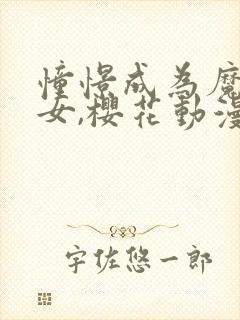 憧憬成為魔
女,櫻花動漫
宇佐悠一郎